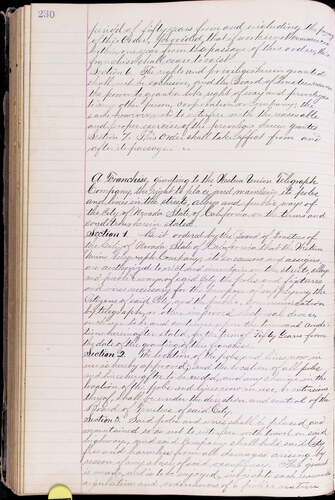 230
period of fifty years from and including the
of this Order. Provided that if work is not
within one year from the passage of this order the
franchise shall cease to exist.
Section 6. The rights and privileges herein granted
shall be
the power to grant a like right of way and privilege
to any other person corporation or company, the
same however not to interfere with the reasonable
and proper exercise of the franchise hereby granted
Section 7. This Order shall take effect from and
after its passage
A Franchise granting to the Western Union Telegraph
Company the right to place and maintain its poles
and lines in the streets, alleys and public ways of
the City of Nevada State of California on the terms and
conditions herein stated.
Section 1. Be it ordered by the Board of Trustees of
the City of Nevada State of California that the Western
Union Telegraph Company, its successors and assigns,
are authorized to erect and maintain on the streets, alleys
and public ways of said City the poles and fixtures
and wires necessary for the supplying the
Citizens of said City and the public communication
by telegraph or other improved
the terms and conditions
hereinafter stated for the term of Fifty Years from
the date of the granting of this franchise.
Section 2. The location of the poles and lines now in
use is hereby approved and the location of all poles
and lines hereafter
location of the poles and lines now in use, or extensions
thereof, shall be under the direction and control of the
Board of Trustees of said City.
Section 3. Said poles and wires shall be placed and
maintained so as not to interfere with travel on said
highways and said Company shall hold said City
free and harmless from all damages arising by
reason of any abuse of said franchise. This grant
is made and is to be enjoyed subject to such reasonable
regulations and ordinances of a police nature